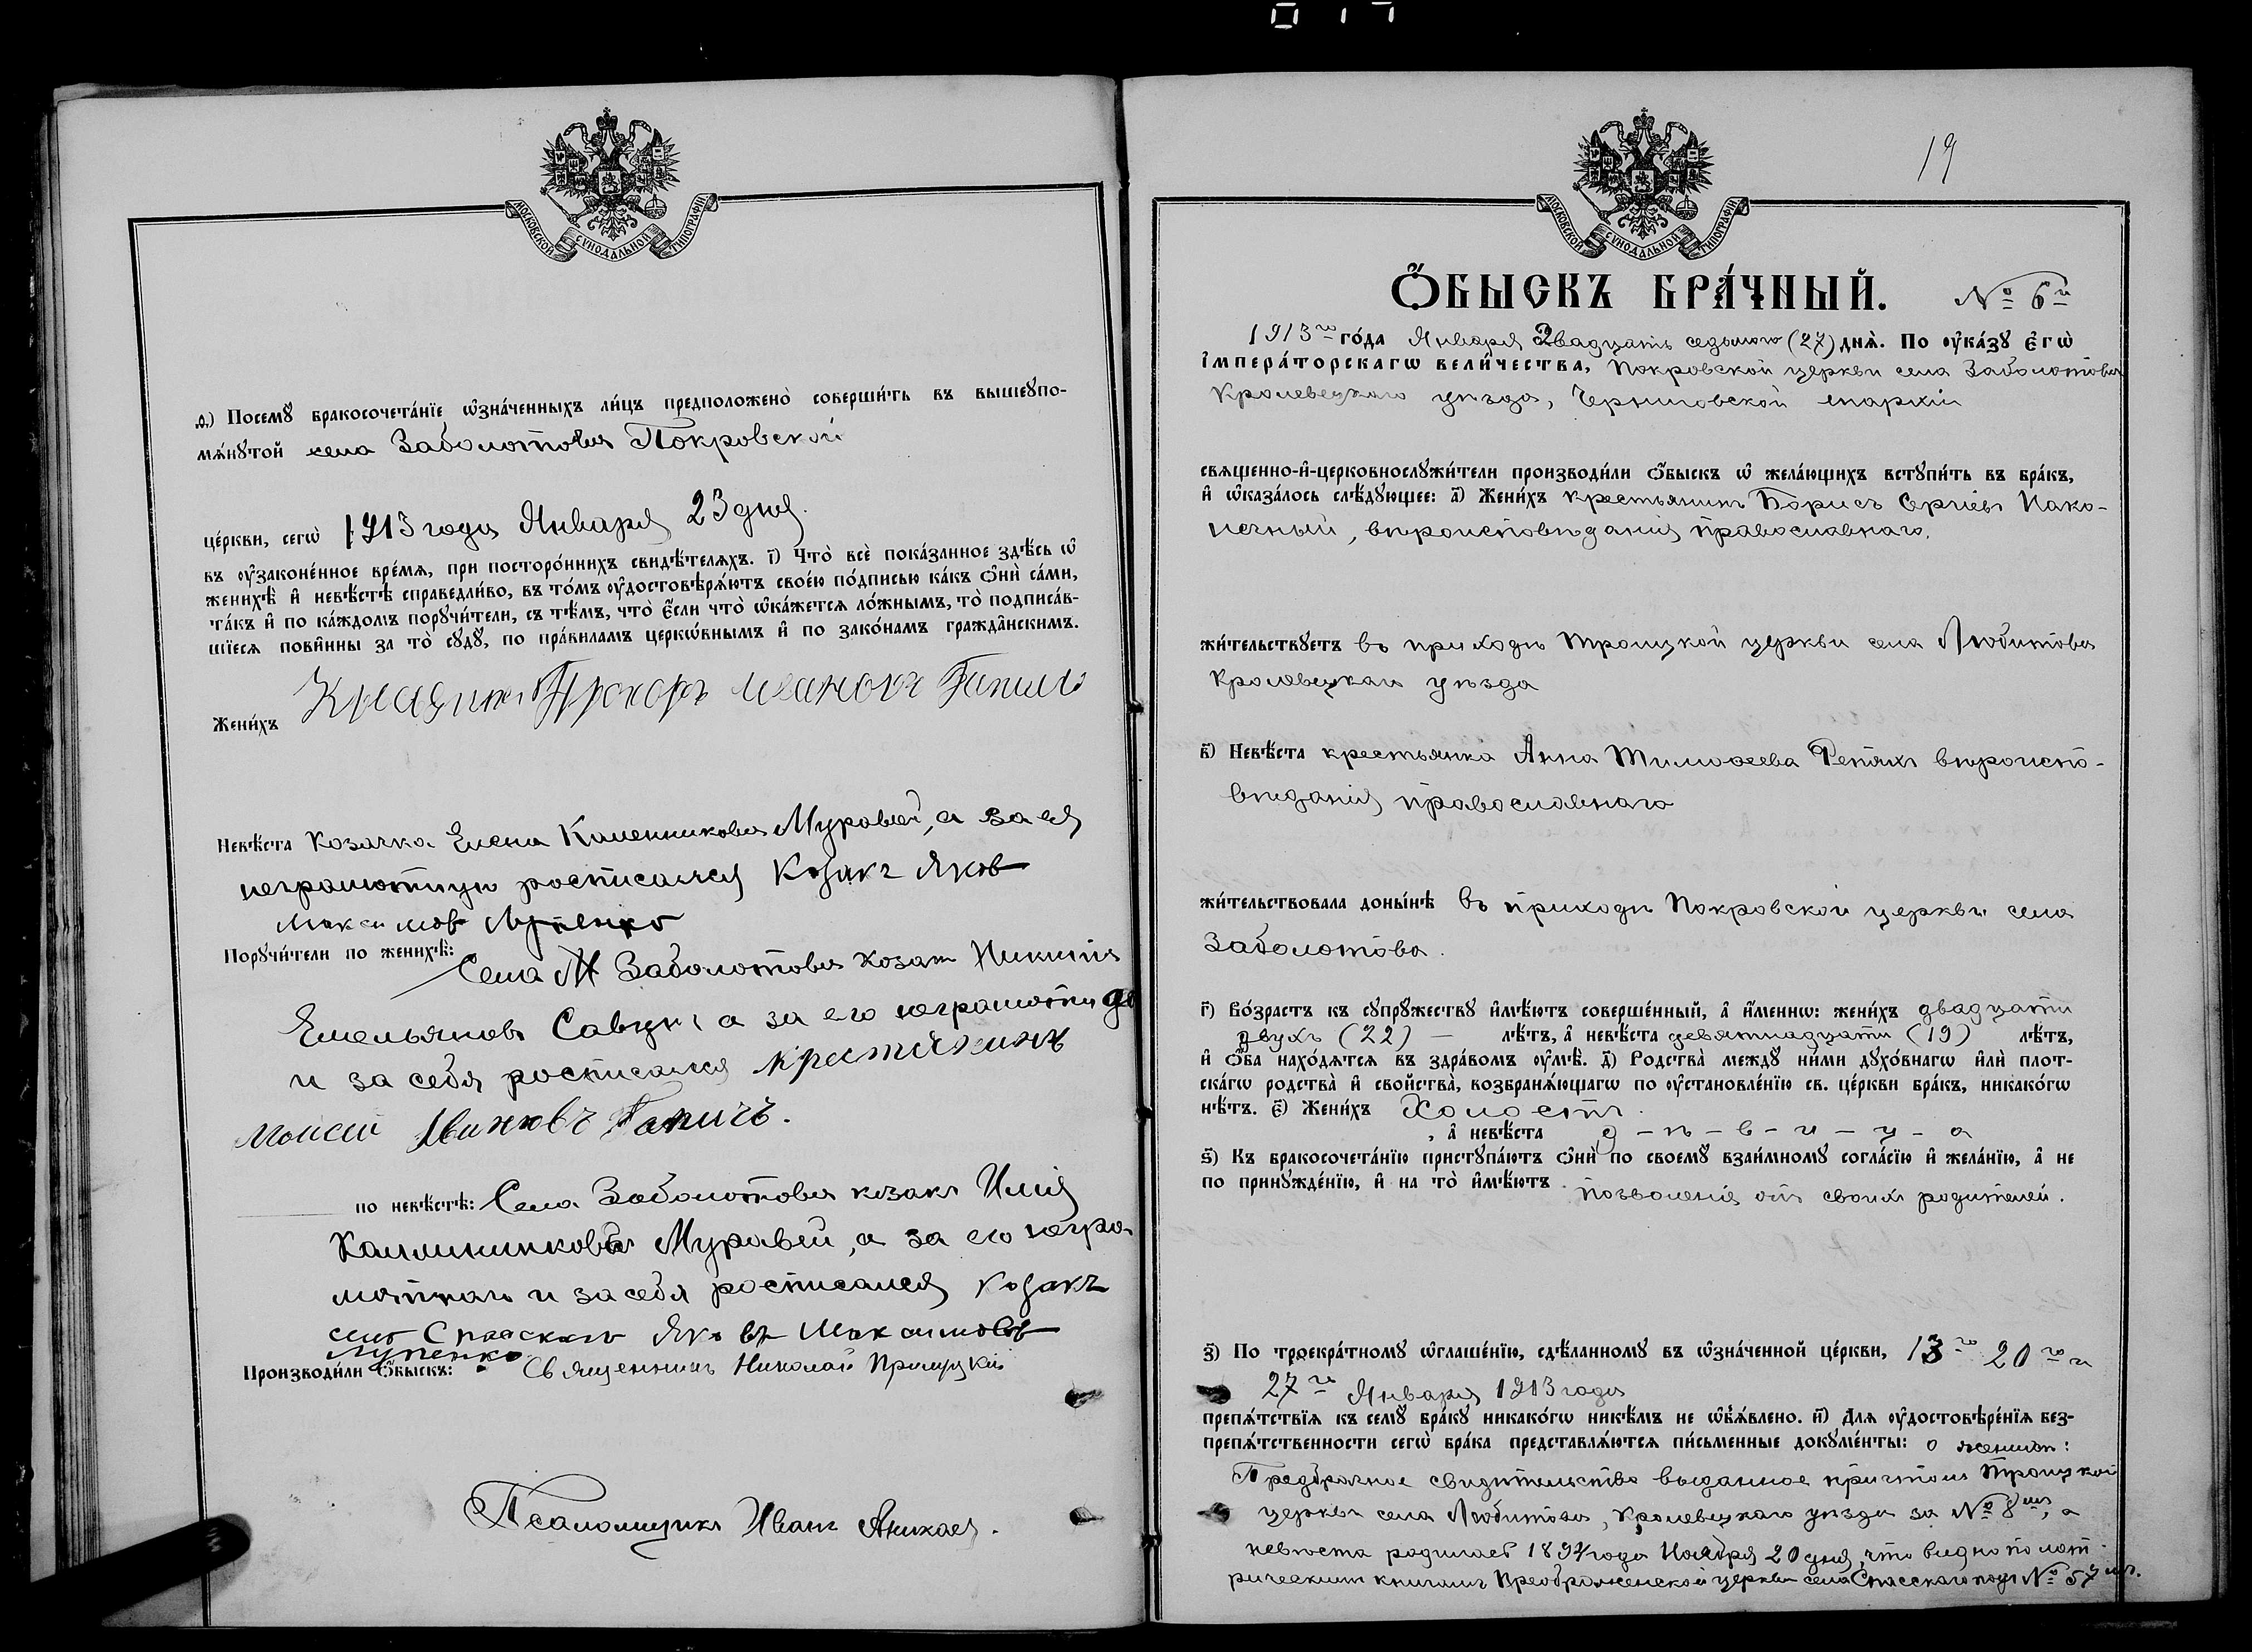 МОСКОВСКОЙ СѴНОДАЛЬНОЙ ТИПОГРАФІИ
ѳ҃.) Посемꙋ̀ бракосочета́нїе ѡ҆зна́ченныхъ ли́цъ предположено̀ соверши́ть въ вышеꙋпо-
мѧ́нꙋтой села Заболотова Покровской
це́ркви, сегѡ̀ 1913 года Января 23 дня.
въ ᲂу҆законе́нное вре́мѧ, при посторо́ннихъ свидѣ́телѧхъ. і҃) Что̀ всѐ пока́занное здѣ́сь ѡ҆
женихѣ̀ и҆ невѣ́стѣ справедли́во, въ то́мъ ᲂу҆достовѣрѧ́ютъ свое́ю по́дписью ка́къ ѻ҆нѝ са́ми,
та́къ и҆ по ка́ждомъ порꙋчи́тели, съ тѣ́мъ, что̀ є҆́сли что̀ ѡ҆ка́жетсѧ ло́жнымъ, то̀ подписа́в-
шїесѧ пови́нны за то̀ сꙋдꙋ̀, по пра́виламъ церкѡ́внымъ и҆ по зако́намъ гражда̂нскимъ.
Жени́хъ Прохоръ Ивановъ
Невѣ́ста козачка Елена Калинникова Муравей, а за ея
неграмотную росписался Козакъ Яков
Максимов Лупенко
Порꙋчи́тели по женихѣ̀:
Села Заболотова козак Никита
Емельяновъ Савцун а за его неграмотнаго
и за себя росписался крестянинъ
Моисей
по невѣ́стѣ: Села Заболотова козакъ Илия
Калинниковъ Муравей, а за его негра
мотнаго и за себя росписался козакъ
села Спаского Яковъ Максимовъ
Лупенко
Производи́ли ѻ҆́быскъ: Священникъ Николай
Псаломщикъ Иванъ
19
МОСКОВСКОЙ СѴНОДАЛЬНОЙ ТИПОГРАФІИ
Ѻ҆́БЫСКЪ БРА́ЧНЫЙ. № 6й
1913го го́да Января Двадцать седьмого (27) днѧ̀. По ᲂу҆ка́зꙋ є҆гѡ̀
і҆мпера́торскагѡ вели́чества, Покровской церкви села Заболотова
Кролевецкаго уѣзда, Черниговской епархіи
свѧщенно-и҆-церковнослꙋжи́тели производи́ли ѻ҆́быскъ ѡ҆ жела́ющихъ встꙋпи́ть въ бра́къ,
и҆ ѡ҆каза́лось слѣ́дꙋющее: а҃) Жени́хъ крестьянинъ Борисъ Сергіевъ Нако-
нечный, вѣроисповѣданія православнаго.
жи́тельствꙋетъ въ приходѣ Троицкой церкви села Любитова
Кролевецкаго уѣзда
в҃) Невѣ́ста крестьянка Анна Тимоѳеева Репяхъ вѣроиспо-
вѣданія православнаго
жи́тельствовала доны́нѣ въ приходѣ Покровской церкви села
Заболотова.
г҃) Во́зрастъ къ сꙋпрꙋ́жествꙋ и҆мѣ́ютъ соверше́нный, а҆ и҆́меннѡ: жени́хъ двадцати
двухъ (22) — лѣ́тъ, а҆ невѣ́ста девятнадцати (19) лѣ́тъ,
и҆ ѻ҆́ба нахо́дѧтсѧ въ здра́вомъ ᲂу҆мѣ̀. д҃) Родства̀ междꙋ̀ ни́ми дꙋхо́внагѡ и҆лѝ плот-
ска́гѡ родства̀ и҆ сво́йства̀, возбранѧ́ющагѡ по ᲂу҆становле́нїю св. це́ркви бра́къ, никако́гѡ
нѣ́тъ. є҃) Жени́хъ Холостъ.
, а҆ невѣ́ста д-ѣ-в-и-ц-а
ѕ҃) Къ бракосочета́нїю пристꙋпа́ютъ ѻ҆нѝ по своемꙋ̀ взаи́мномꙋ согла́сїю и҆ жела́нїю, а҆ не
по принꙋжде́нїю, и҆ на то̀ и҆мѣ́ютъ позволенія отъ своихъ родителей.
з҃) По троекра́тномꙋ ѡ҆глаше́нїю, сдѣ́ланномꙋ въ ѡ҆зна́ченной це́ркви, 13го 20го и
27го Января 1913 года
препѧ́тствїѧ къ семꙋ̀ бра́кꙋ никако́гѡ никѣ́мъ не ѡ҆б̾ѧ́влено. и҃) Длѧ ᲂу҆достовѣре́нїѧ без-
препѧ́тственности сегѡ̀ бра́ка представлѧ́ютсѧ пи́сьменные докꙋме́нты: о женихѣ:
Предбрачное свидѣтельство выданное причтомъ Троицкой
церкви села Любитова, Кролевецкаго уѣзда за № 8мъ, а
невѣста родилась 1894 года Ноября 20 дня, что видно по мет-
рическимъ книгамъ Преображенской церкви села Спасскаго подъ № 57мъ.